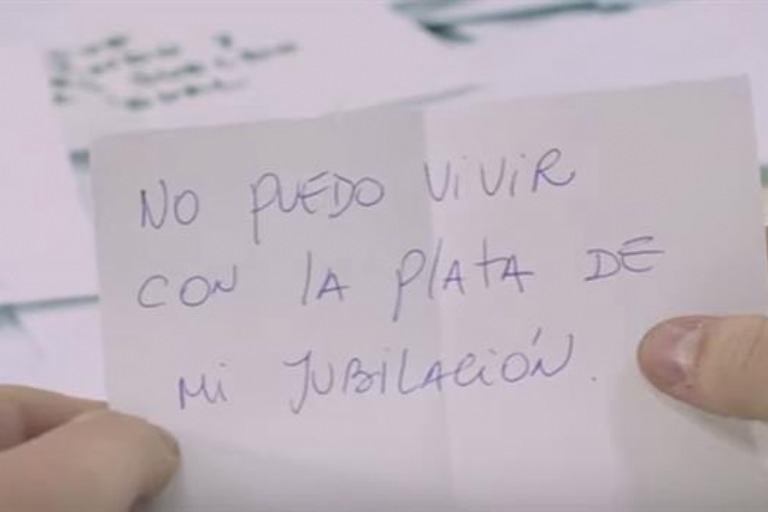 NO PUEDO ViViR
CON lA PlAtA DE
Mi JUBiLACiÓN.